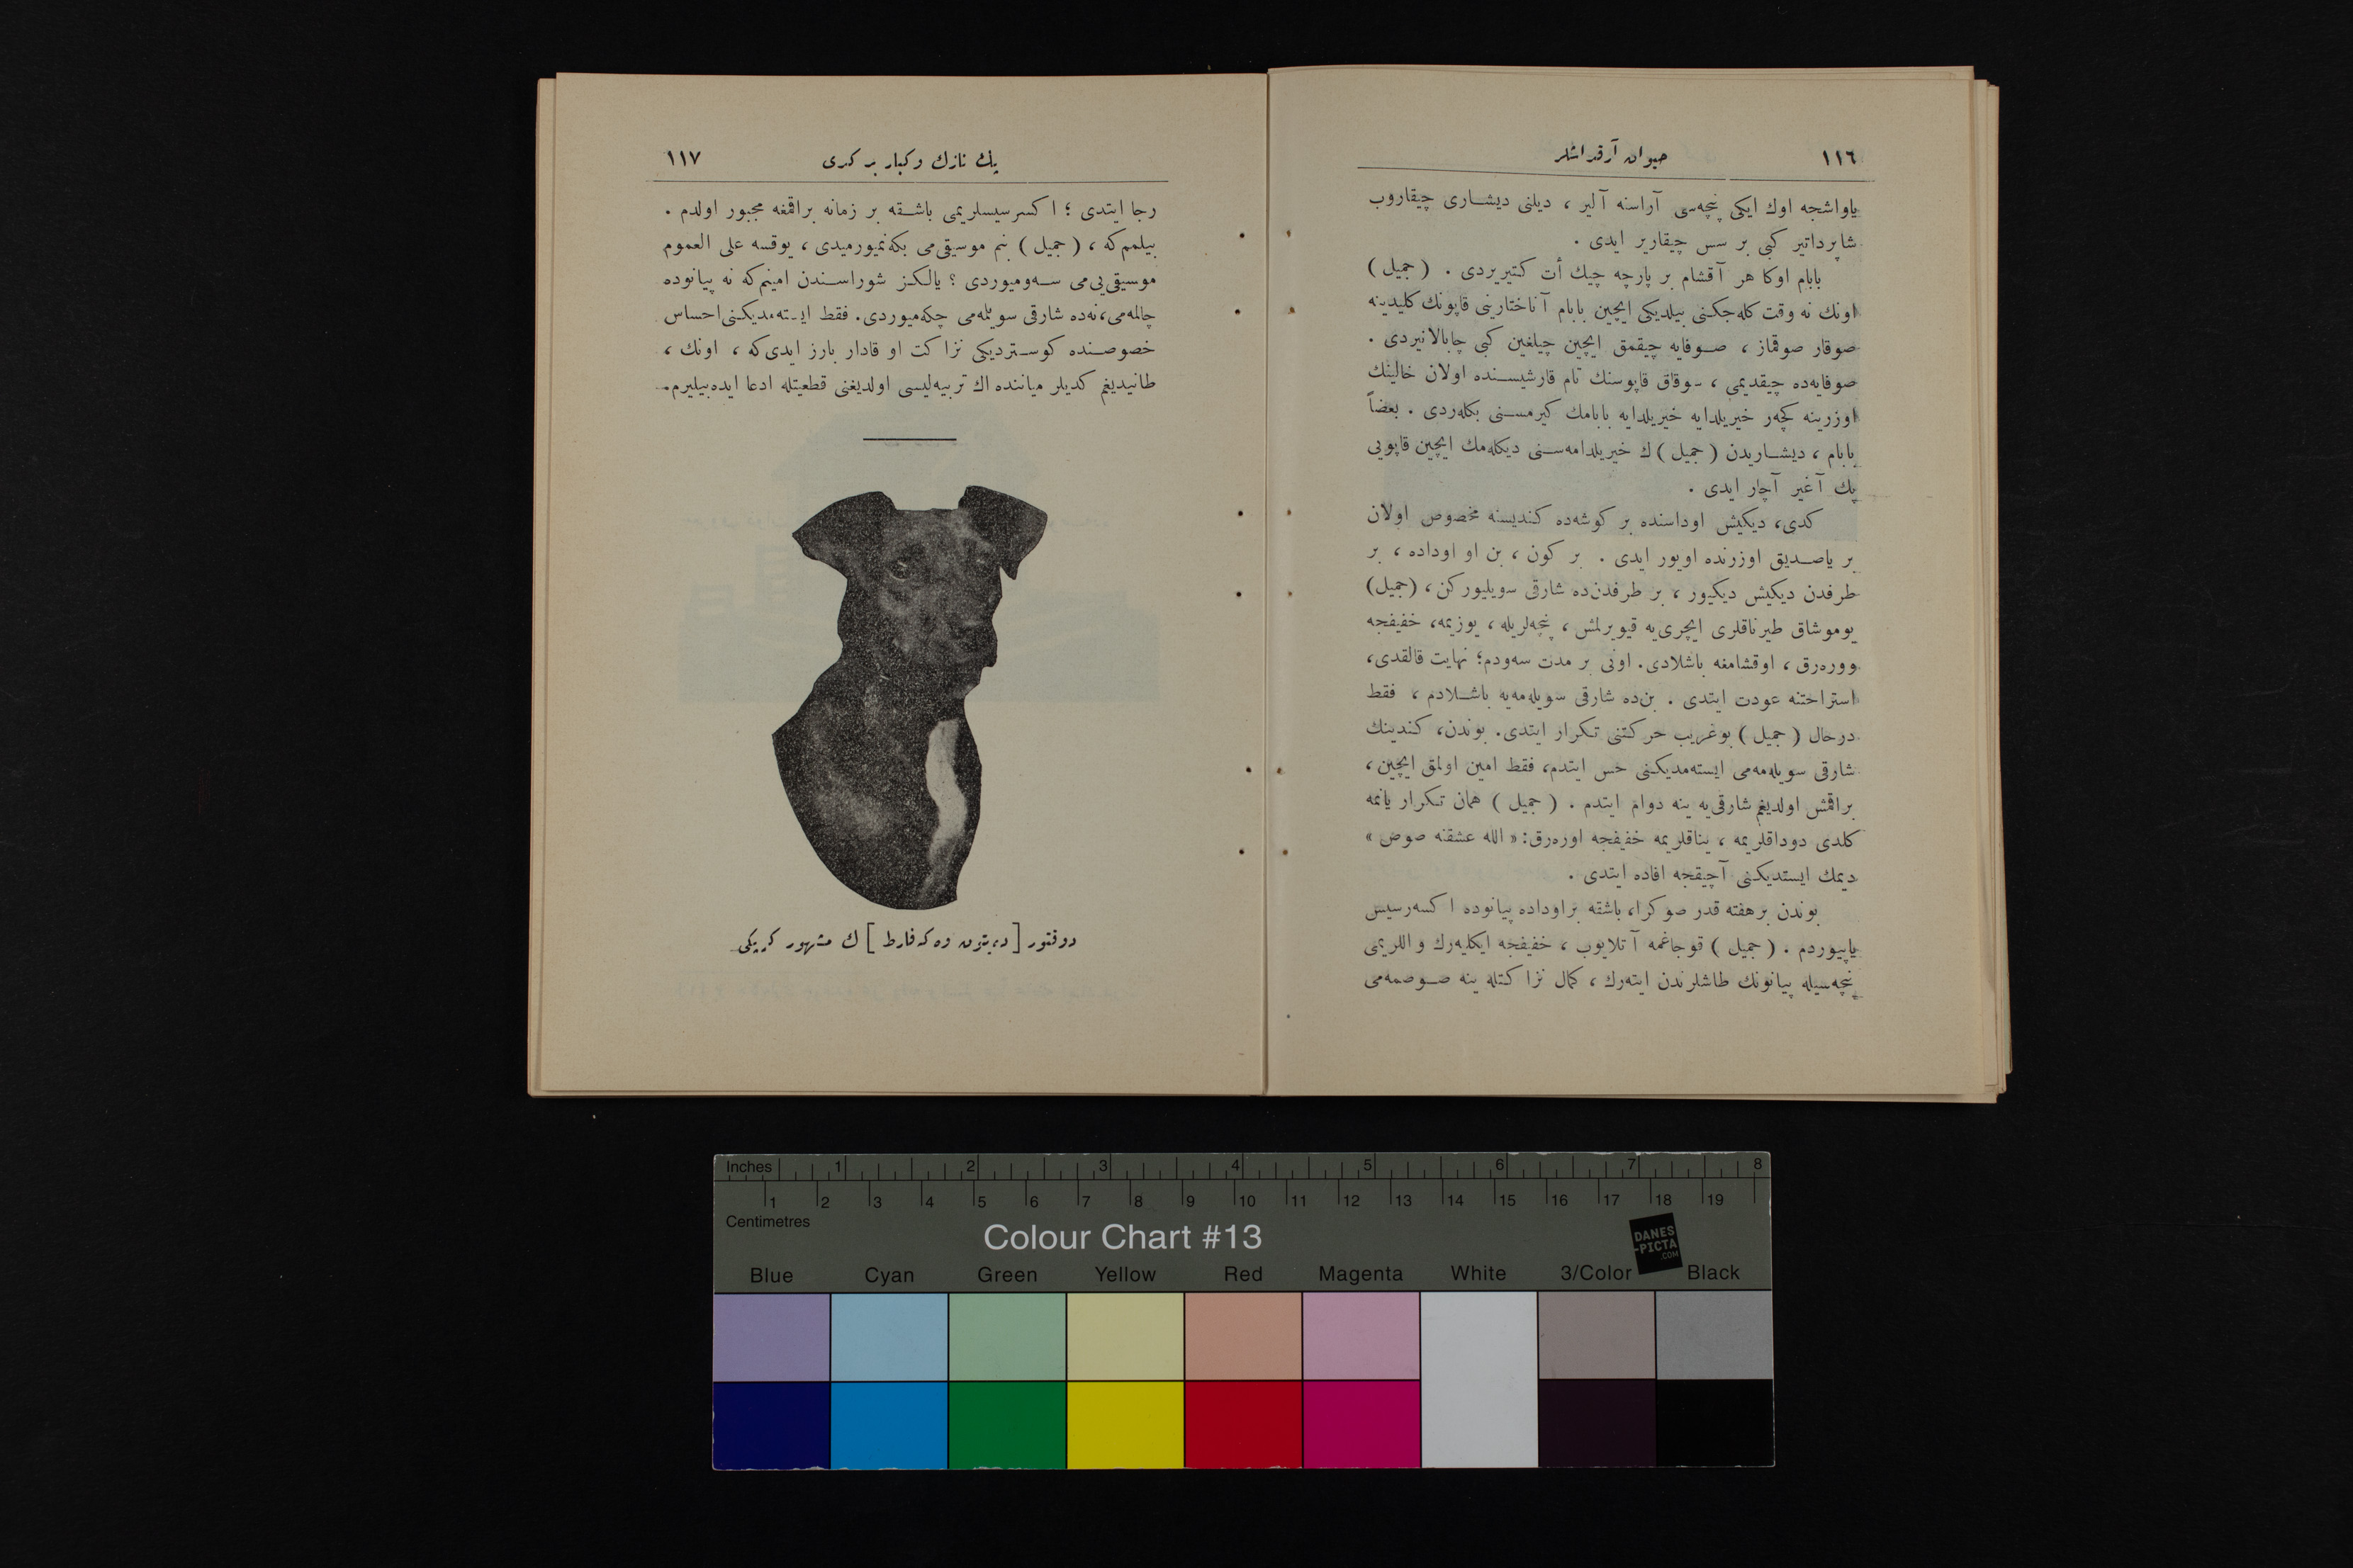 ١١٦
حیوان آرقداشلر
یاواشجه اوك ایكی پنچه‌سی آراسنه آلیر ، دیلنی دیشاری چیقاروب
شاپرداتیر كبی بر سس چیقاریر ایدی .
بابام اوكا هر آقشام بر پارچه چیك أت كتیریردی . ( جمیل )
اونك نه وقت كله‌جكنی بیلدیكی ایچین بابام آناختارینی قاپونك كلیدینه
صوقار صوقماز ، صوفایه چیقمق ایچین چیلغین كبی چابالانیردی .
صوفایه‌ده چیقدیمی ، سوقاق قاپوسنك تام قارشیسنده اولان خالینك
اوزرینه كچه‌ر خیریلدایه خیریلدایه بابامك كیرمسنی بكله‌ردی . بعضاً
بابام ، دیشاریدن ( جمیل ) ك خیریلدامه‌سنی دیكله‌مك ایچین قاپویی
پك آغیر آچار ایدی .
كدی، دیكیش اوداسنده بر كوشه‌ده كندیسنه مخصوص اولان
بر یاصدیق اوزرنده اویور ایدی . بر كون ، بن او اوداده ، بر
طرفدن دیكیش دیكیور ، بر طرفدن‌ده شارقی سویلیوركن ، (جمیل)
یوموشاق طیرناقلری ایچری‌یه قیویرلمش ، پنچه‌لریله ، یوزیمه، خفیفجه
ووره‌رق ، اوقشامغه باشلادی. اونی بر مدت سه‌ودم؛ نهایت قالقدی،
استراحتنه عودت ایتدی . بن‌ده شارقی سویله‌مه‌یه باشلادم ، فقط
درحال ( جمیل ) بوغریب حركتنی تكرار ایتدی. بوندن، كندینك
شارقی سویله‌مه‌می ایسته‌مدیكنی حس ایتدم، فقط امین اولمق ایچین ،
براقمش اولدیغم شارقی‌یه ینه دوام ایتدم . ( جمیل ) همان تكرار یانمه
كلدی دوداقلریمه ، یناقلریمه خفیفجه اوره‌رق: « الله عشقنه صوص »
دیمك ایستدیكنی آچیقجه افاده ایتدی .
بوندن برهفته قدر صوكرا، باشقه براوداده پیانوده اكسه‌رسیس
یاپیوردم . ( جمیل ) قوجاغمه آتلایوب ، خفیفجه ایكلیه‌رك و اللریمی
پنچه‌سیله پیانونك طاشلرندن ایته‌رك ، كمال نزاكتله ینه صوصمه‌می
پك نازك وكبار بر كدی
١١٧
رجا ایتدی ؛ اكسرسیسلریمی باشقه بر زمانه براقمغه مجبور اولدم .
بیلمم‌كه ، ( جمیل ) بنم موسیقی‌می بكه‌نمیورمیدی ، یوقسه علی العموم
موسیقی‌یی‌می سه‌ومیوردی ؟ یالكز شوراسندن امینم‌كه نه پیانوده
چالمه‌می، نه‌ده شارقی سویلمه‌می چكه‌میوردی. فقط ایسته‌مدیكنی احساس
خصوصنده كوستردیكی نزاكت او قادار بارز ایدی‌كه ، اونك ،
طانیدیغم كدیلر میاننده اك تربیه‌لیسی اولدیغنی قطعیتله ادعا ایده‌بیلیرم.
دوقتور [ ] ك مشهور كوپكی
Inches 1 2 3 4 5 6 7 8
1 2 3 4 5 6 7 8 9 10 11 12 13 14 15 16 17 18 19
Centimetres
Colour Chart #13
DANES
-PICTA
.COM
Blue Cyan Green Yellow Red Magenta White 3/Color Black